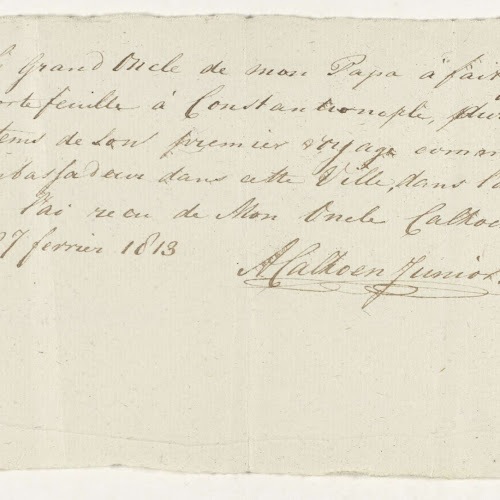 Grand Oncle de mon Papa à fait
ortefeuille à Constantinople,
tems de son premier voyage comm
bassadeur dans cette Ville, dans l'a
l'ai recu de Mon Oncle Calkoe
7 fevrier 1813
A Calkoen Junior.